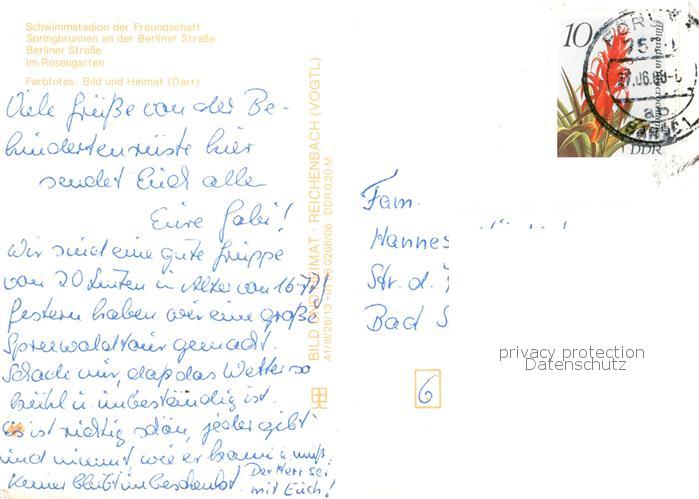 Schwimmstadion der Freundschaft
Springbrunnen an der Berliner Straße
Berliner Straße
Im Rosengarten
Farbfotos: Bild und Heimat (Darr)
Viele Grüße von der Be-
hindertenrüste hier
sendet Euch allen
Eure Gabi!
Wir sind eine gute Gruppe
von 20 Leuten im Alter von 16-77!
Gestern haben wir eine große
Spreewaldtour gemacht.
Schade nur, daß das Wetter so
kühl u. unbeständig ist.
Es ist richtig schön, jeder gibt
und nimmt wie er kann u. muß,
Keiner bleibt unbeschenkt. Der Herr sei
mit Euch!
BILD UND HEIMAT · REICHENBACH (VOGTL)
A1/III/26/13 DDR 0,20 M
10
DDR
Fam.
Hannes
Str. d.
Bad S
6
privacy protection
Datenschutz